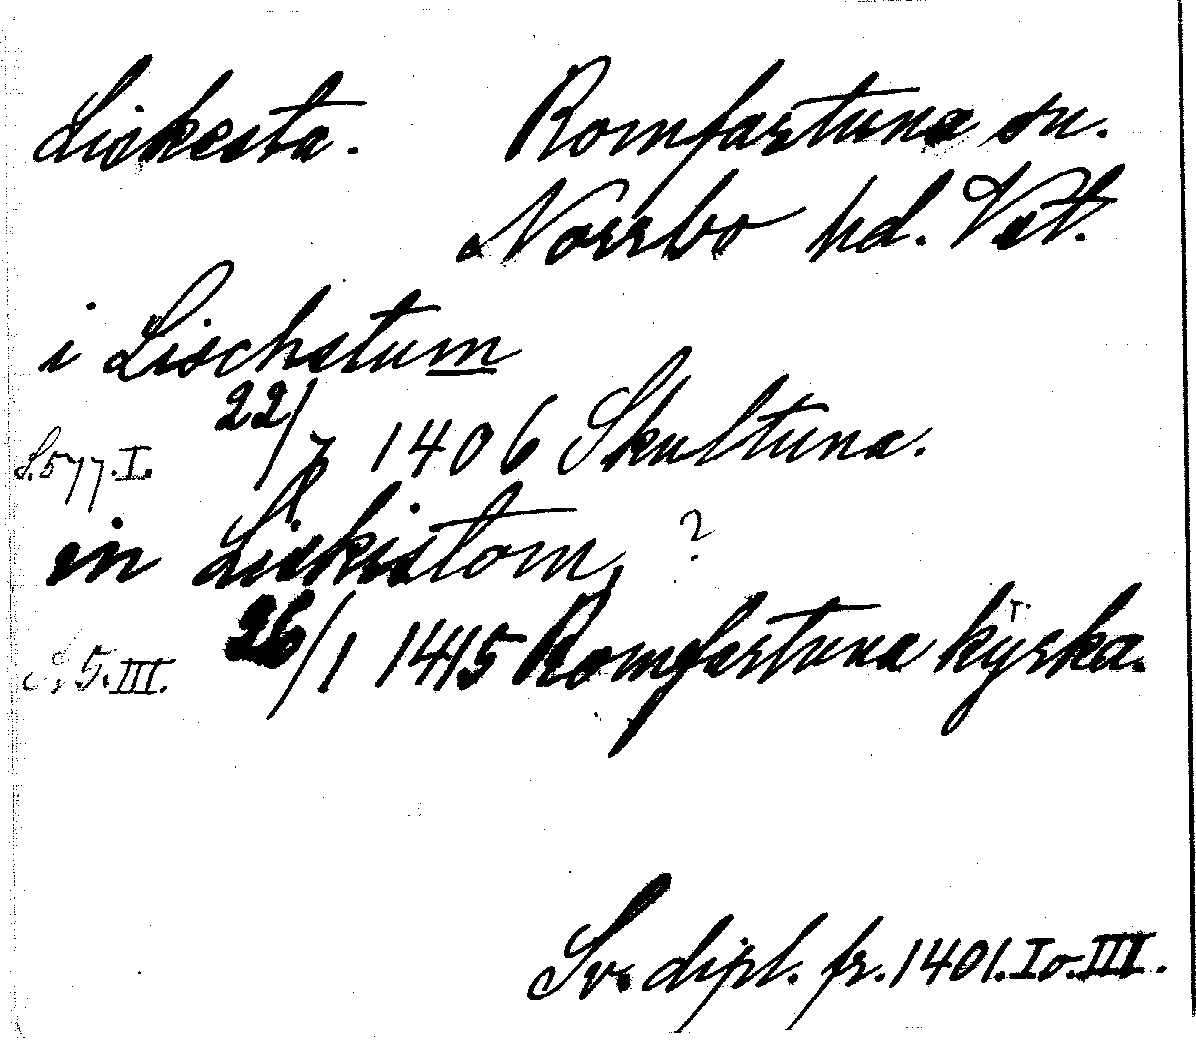 Liskesta. Romfartuna sn.
Norrbo hd. Vst.
i Lischstum
S. 577. I. 22/7 1406 Skultuna.
in Liskistom, ?
S. 5. III. 26/1 1415 Romfartuna kyrka.
Sv. dipl. fr. 1401. I o. III.